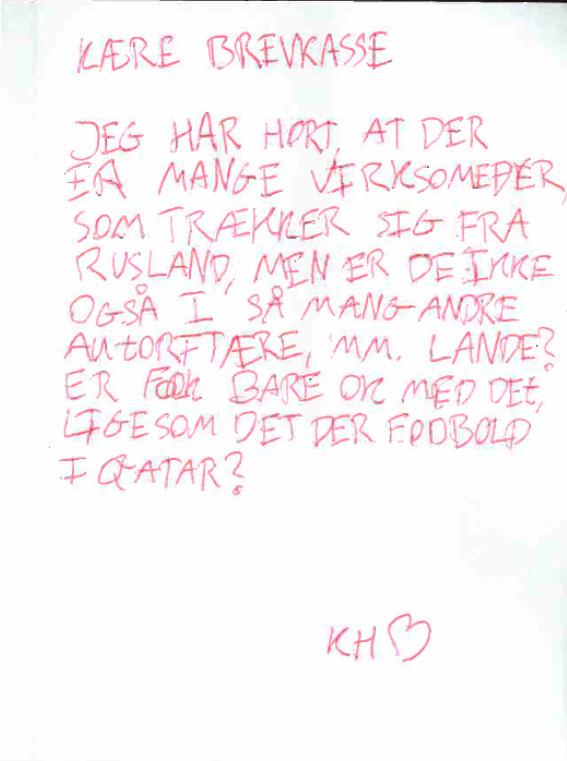 KÆRE BREVKASSE
JEG HAR HØRT, AT DER
ER MANGE VIRKSOMEDER,
SOM TRÆKKER SIG FRA
RUSLAND, MEN ER DE IKKE
OGSÅ I SÅ MANG ANDRE
AUTORITÆRE, MM. LANDE?
ER FOLK BARE OK MED DET,
LIGESOM DET DER FODBOLD
I QATAR?
KH♡